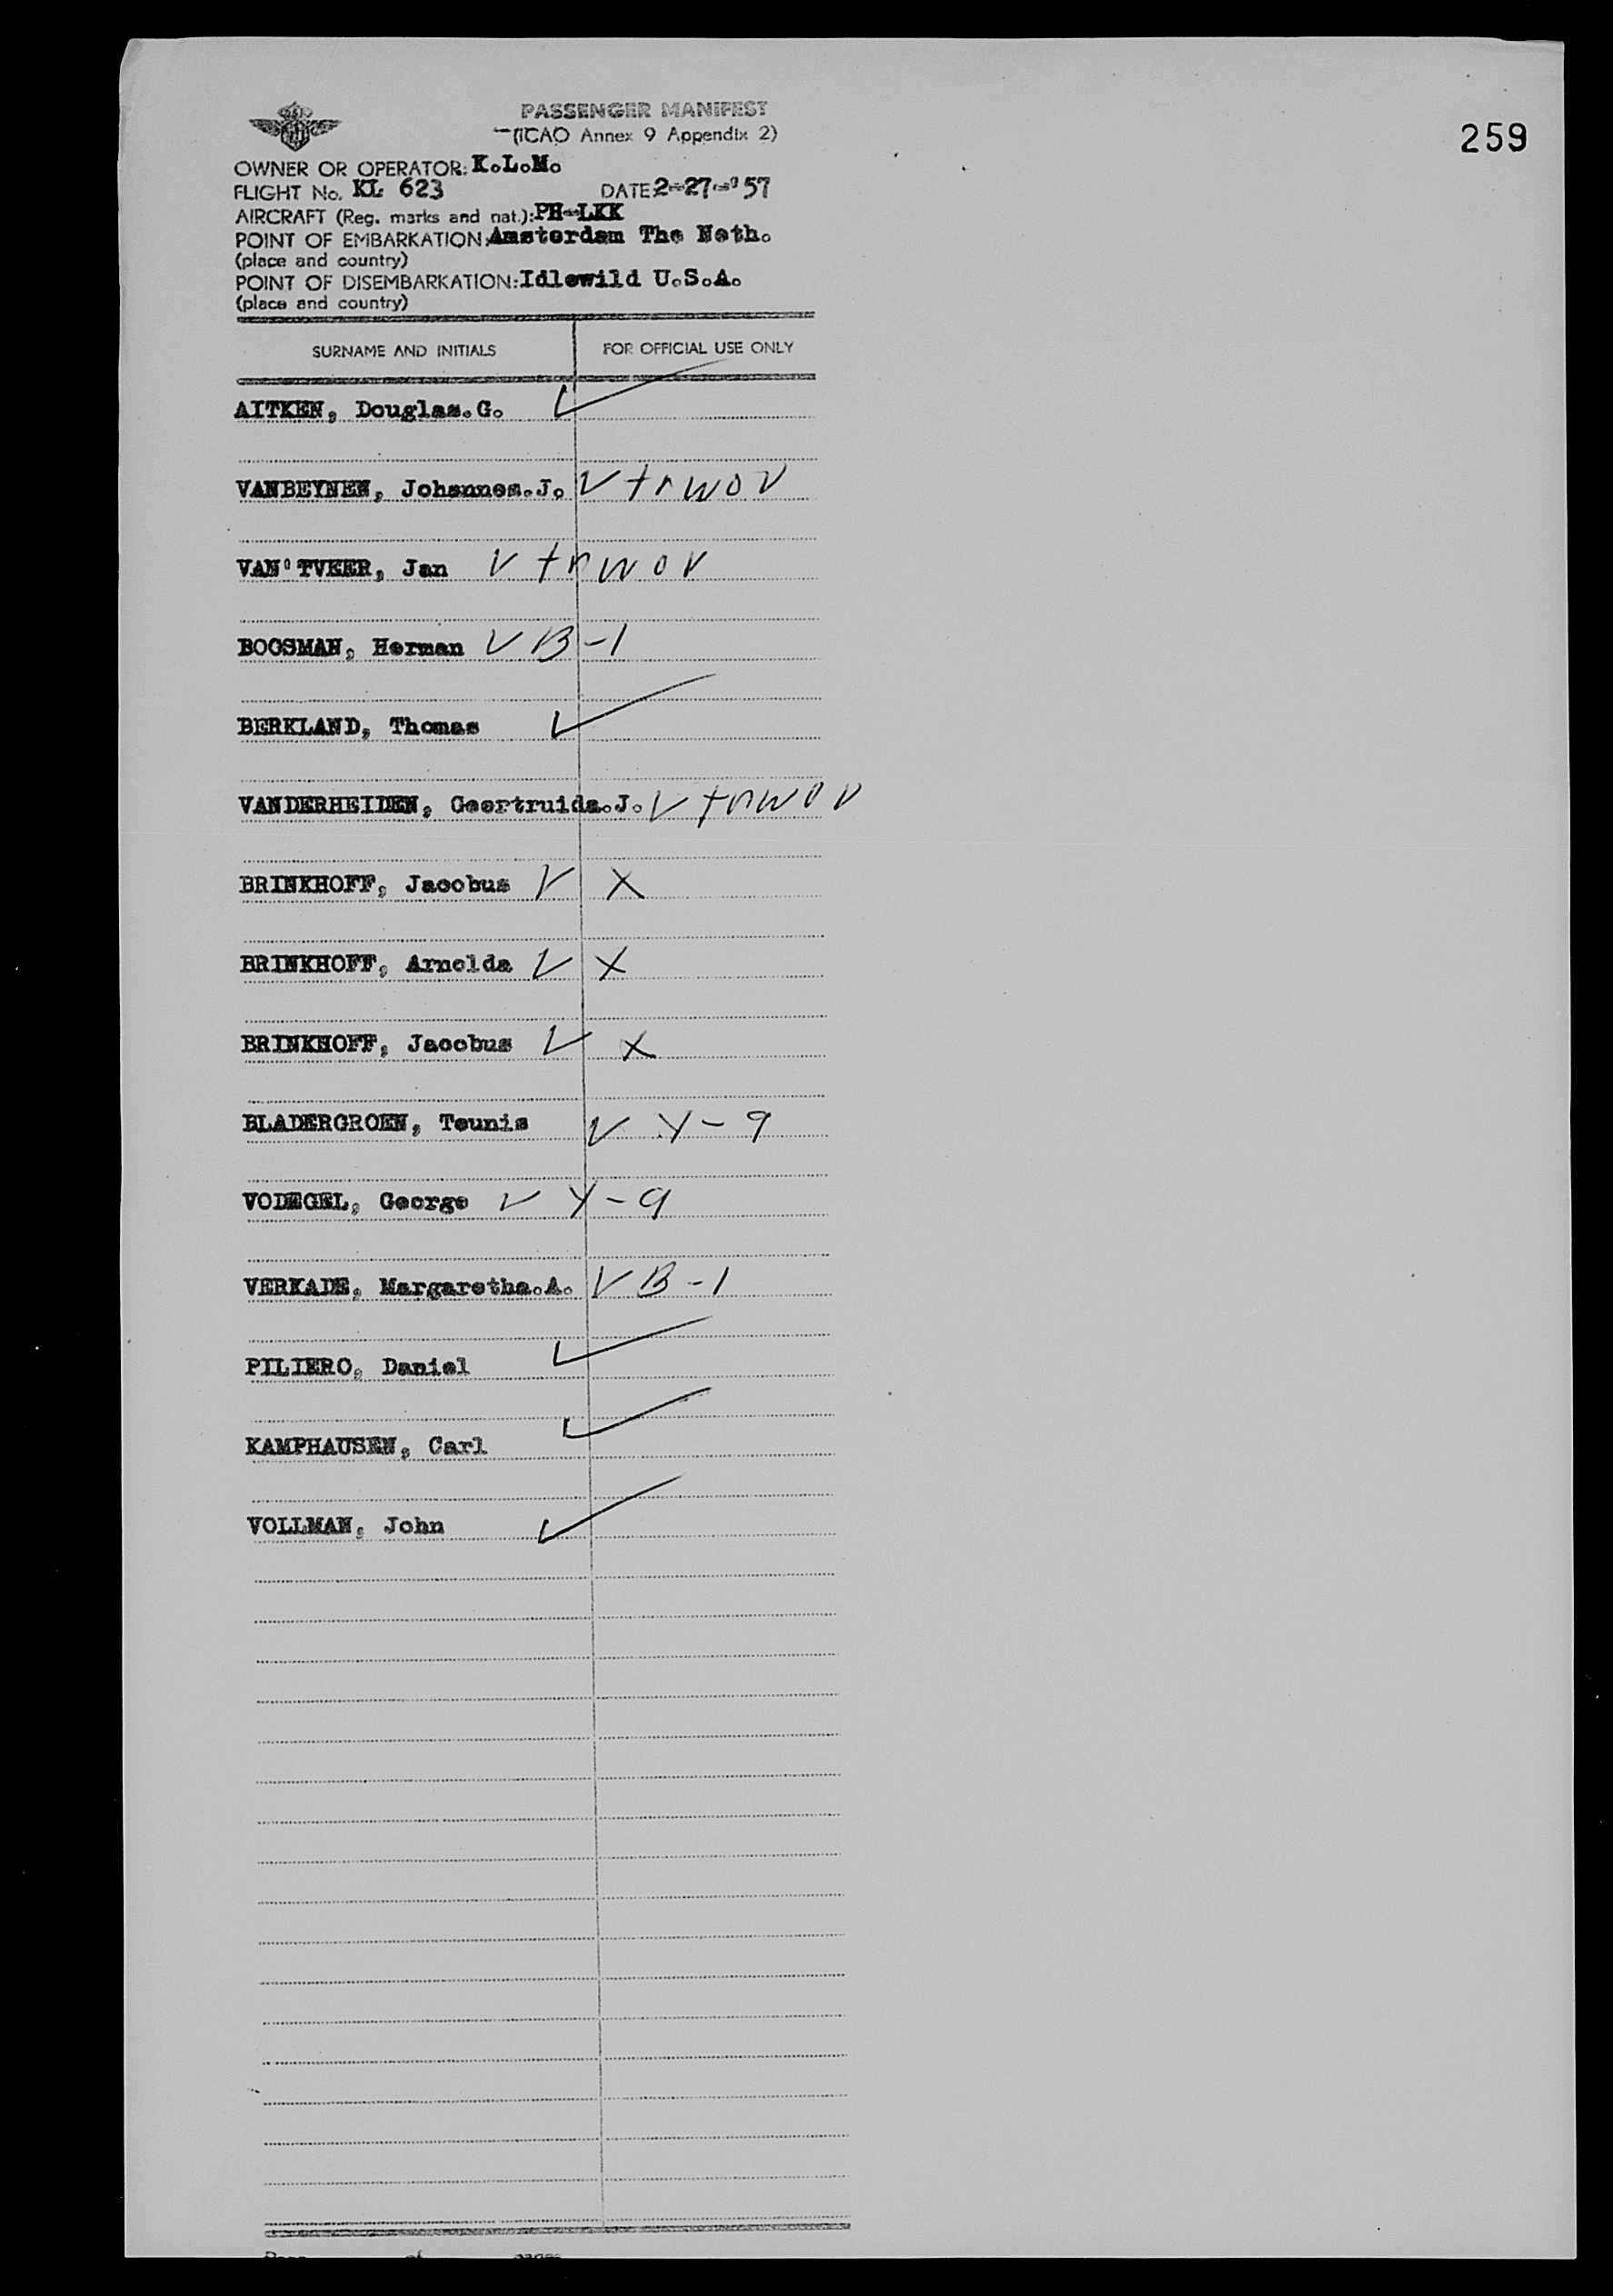 PASSENGER MANIFEST
(ICAO Annex 9 Appendix 2)
259
OWNER OR OPERATOR: K.L.M.
FLIGHT No. KL 623 DATE 2-27-'57
AIRCRAFT (Reg. marks and nat.): PH-LKK
POINT OF EMBARKATION: Amsterdam The Neth.
(place and country)
POINT OF DISEMBARKATION: Idlewild U.S.A.
(place and country)
SURNAME AND INITIALS FOR OFFICIAL USE ONLY
AITKEN, Douglas.G. ✓
VANBEYNEN, Johannes.J. V trwov
VAN'TVEER, Jan V trwov
BOGSMAN, Herman V B-1
BERKLAND, Thomas ✓
VANDERHEIDEN, Geertruida.J. V trwov
BRINKHOFF, Jacobus V X
BRINKHOFF, Arnolda V X
BRINKHOFF, Jacobus V X
BLADERGROEN, Teunis V Y-9
VODEGEL, George V Y-9
VERKADE, Margaretha.A. V B-1
PILIERO, Daniel ✓
KAMPHAUSEN, Carl ✓
VOLLMAN, John ✓